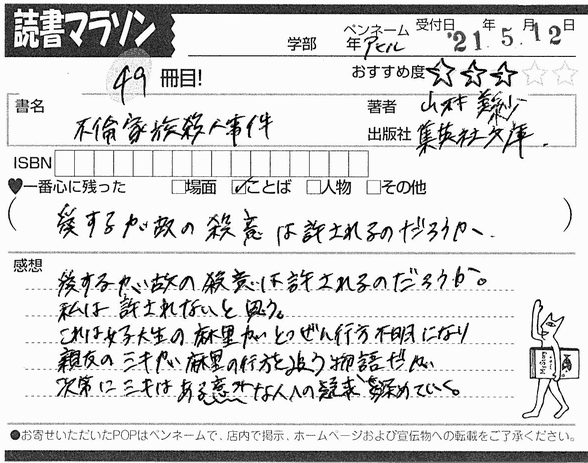 読書マラソン
学部
年
ペンネーム
アヒル
受付日 '21 年 5 月 12 日
49 冊目!
おすすめ度
書名
不倫家族殺人事件
著者 山木 美紗
出版社 集英社文庫.
ISBN
♥一番心に残った □場面 ☑ことば □人物 □その他
(愛するが故の殺意は許されるのだろうか.)
感想
愛するが故の殺意は許されるのだろうか。
私は許されないと思う。
これは女子大生の麻里がとつぜん行方不明になり
親友のミキが麻里の行方を追う物語だが
次第にミキはある意外な人への疑惑を深めていく。
●お寄せいただいたPOPはペンネームで、店内で掲示、ホームページおよび宣伝物への転載をご了承ください。